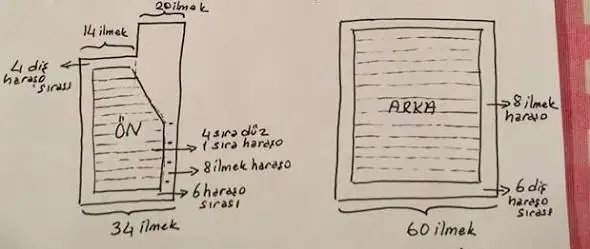 20 ilmek
14 ilmek
4 diş
haraşo
sırası
ÖN
4 sıra düz
1 sıra haraşo
8 ilmek haraşo
6 haraşo
sırası
34 ilmek
ARKA
8 ilmek
haraşo
6 diş
haraşo
sırası
60 ilmek